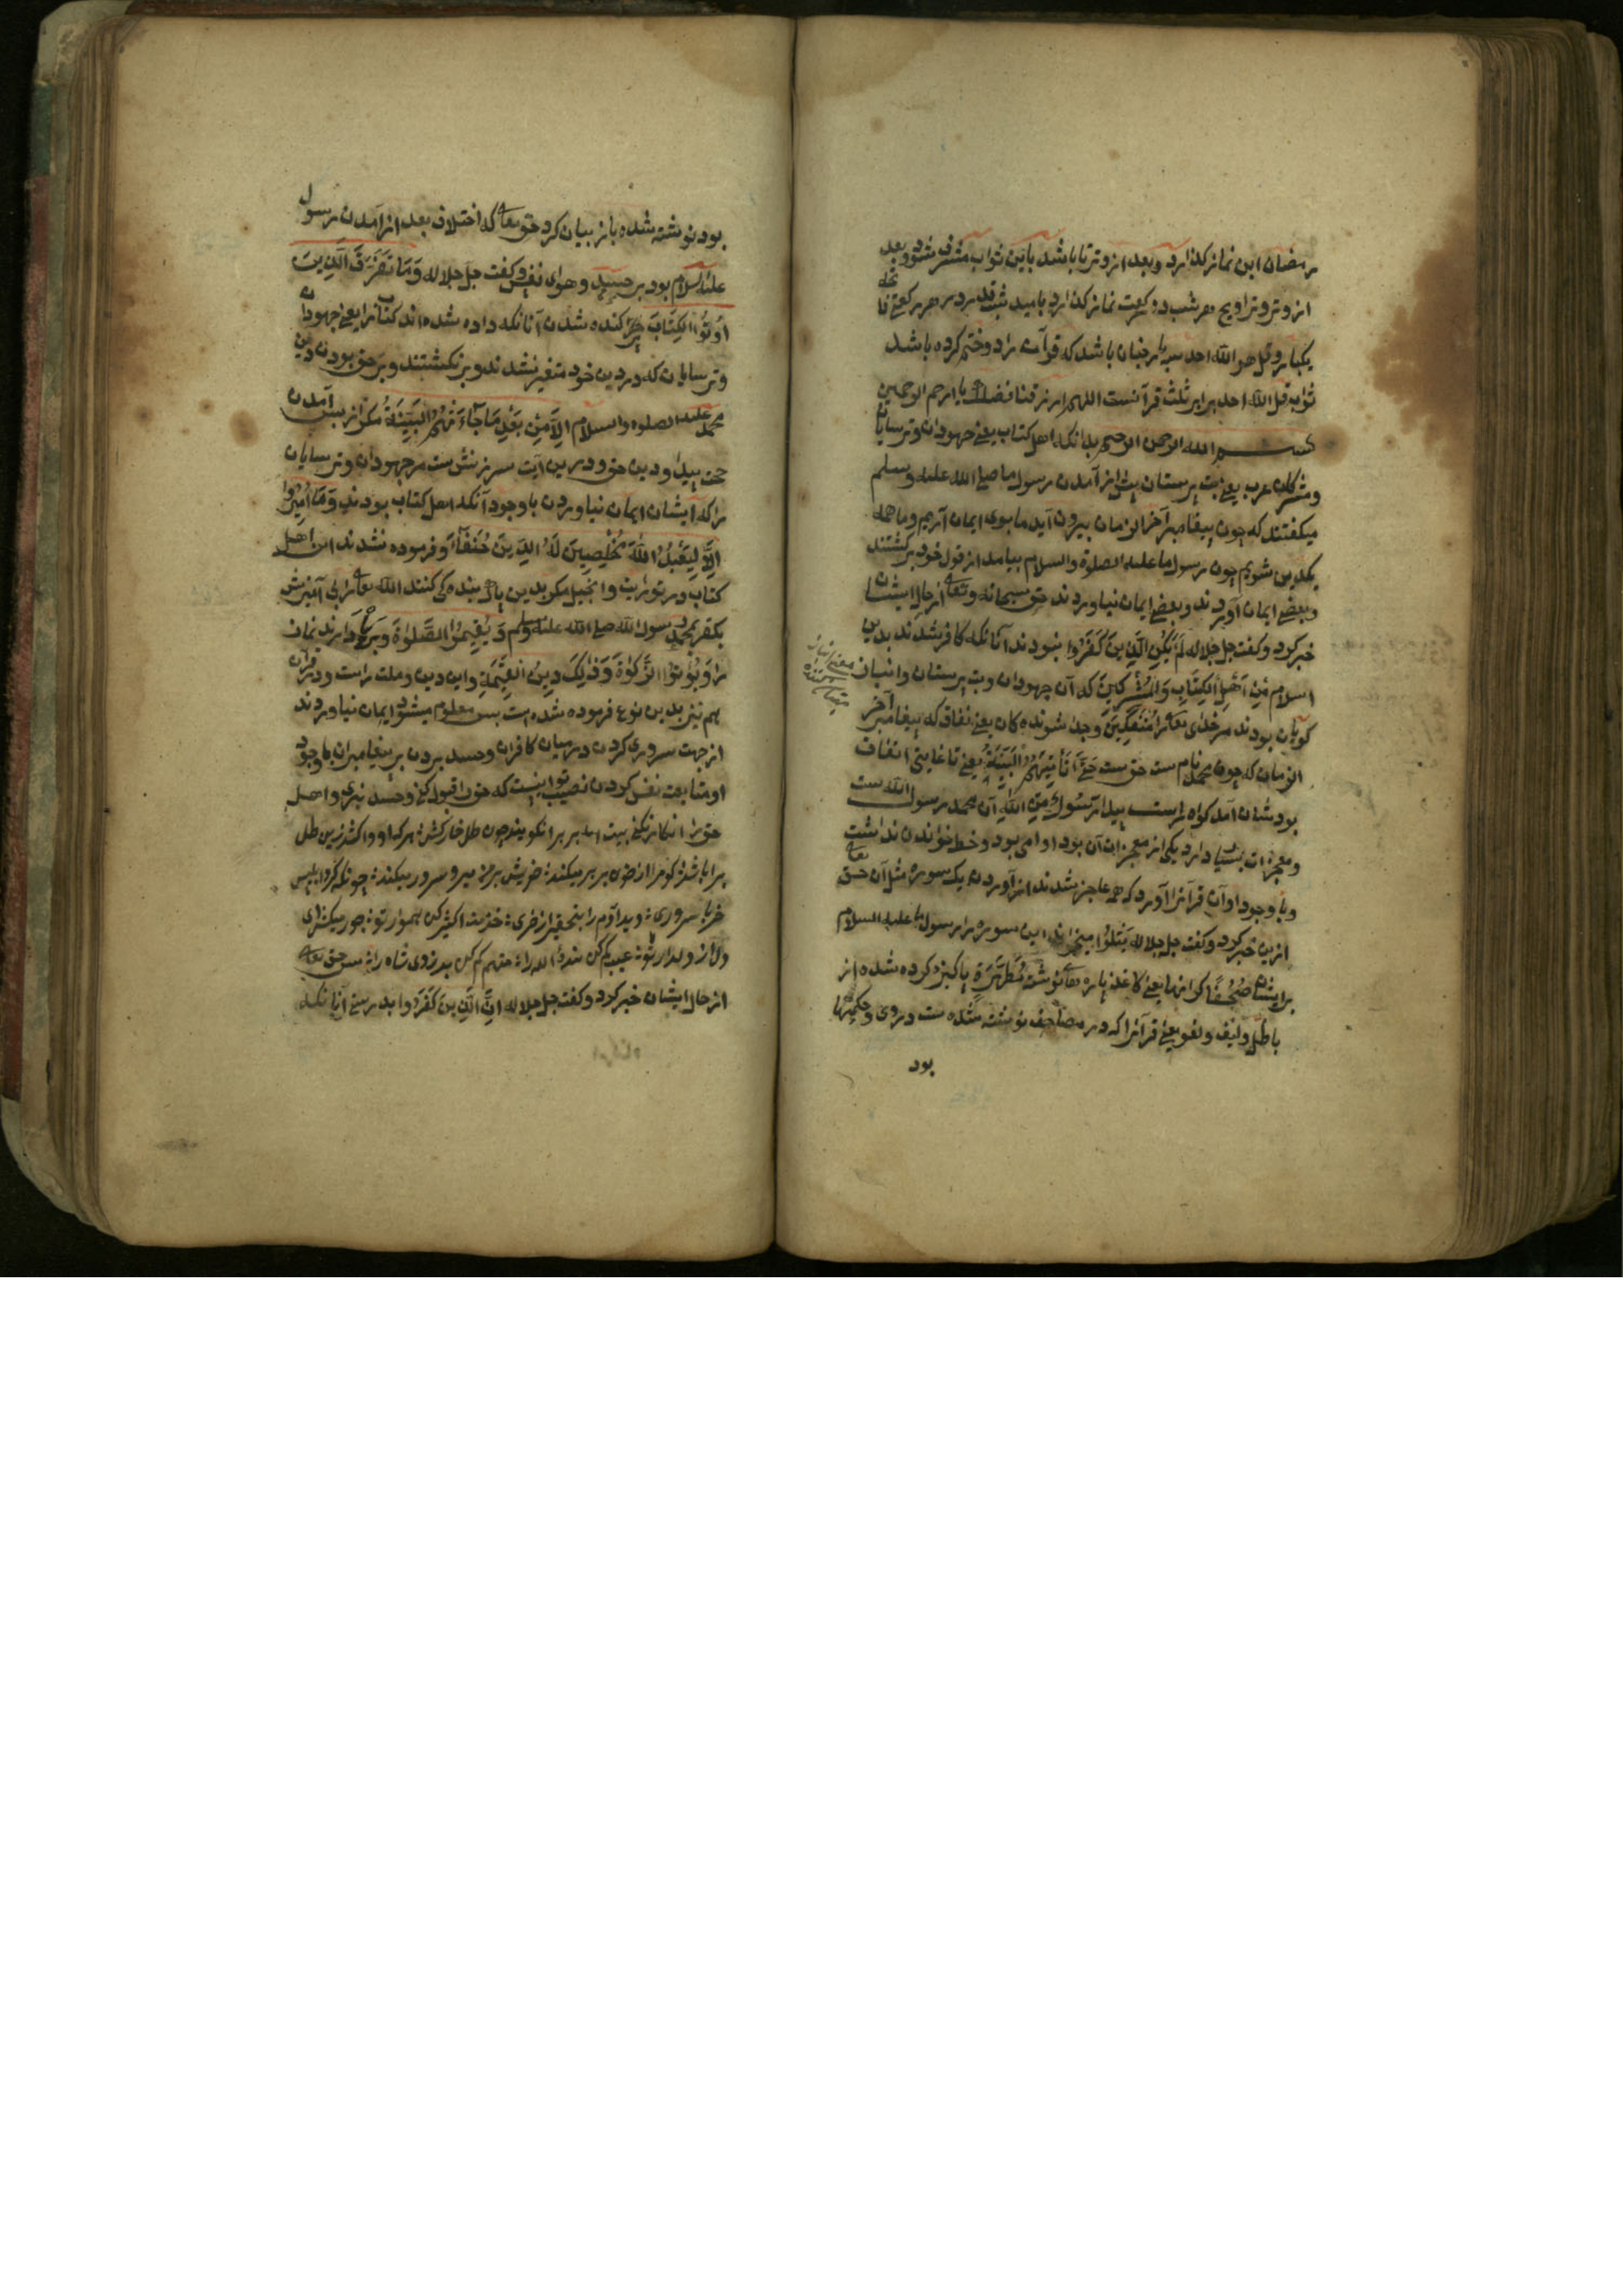 رمضان این نماز کذارد وبعد از وتر تا باشد باین ثواب مشرف شود وبعد
از وتر وتراویح هر شب دو رکعت نماز کذارد بامید شب قدر در هر رکعتی فاتحه
یکبار وقل هو الله احد سه بار چنان باشد که قرآن را دو ختم کرده باشد
ثواب قل الله احد برابر ثلث قرآنست اللهم ارزقنا فضلک یا ارحم الرحمین
بسم الله الرحمن الرحیم بدانکه اهل کتاب یعنی جهودان وترسایان
ومشرکان عرب یعنی بت پرستان پیش از آمدن رسول ما صلی الله علیه وسلم
میکفتند که چون پیغامبر آخر الزمان بیرون آید ما بوی ایمان آریم وما همه
یکدین شویم چون رسول ما علیه الصلوة والسلام بیامد از قول خود برکشتند
وبعضی ایمان آوردند وبعضی ایمان نیاوردند حق سبحانه وتعالی از حال ایشان
خبر کرد وکفت جل جلاله لَمْ یَکُنِ الَّذِینَ کَفَرُوا نبودند آنانکه کافر شدند بدین
اسلام مِنْ اَهْلِ الْکِتَابِ وَالْمُشْرِکِینَ که آن جهودان وبت پرستان وانبان
کویان بودند مر خدای تعالی را مُنْفَکِّینَ وجدا شونده کان یعنی نفاق که پیغامبر آخر
الزمان که چون محمد نام ست حق ست حَتَّی تَأْتِیَهُمُ الْبَیِّنَةُ یعنی تا غایتی اتفاق
بودشان آمد کواه راست پیدا رَسُولٌ مِنَ اللهِ آن محمد رسول الله ست
ومعجزات بسیار دارد یکی از معجزات آن بود او امی بود وخط خواندن نداشت
وباوجود او آن قرآنرا آورد که همه عاجز شدند از آوردن یک سوره مثل آن حق تعالی
ازین خبر کرد وکفت جل جلاله یَتْلُوا میخواند این سوره را رسول ما علیه السلام
برایشان صُحُفًا کرانها یعنی کاغذ پاره هاء نوشته مُطَهَّرَةً پاکیزه کرده شده از
باطل ولغو یعنی قرآنرا که در مصاحف نوشته شده ست دروی وحکمتها
بود
بود نوشته شده باز بیان کرد حق تعالی که اختلاف بعد از آمدن رسول
علیه السلام بود بر حسد وهوای نفس وکفت جل جلاله وَمَا تَفَرَّقَ الَّذِینَ
اُوتُوا الْکِتَابَ پراکنده شدن آنانکه داده شده اند کتابرا یعنی جهودان
وترسایان که در دین خود متغیر نشدند وبرنکشتند وبر حق بودن دین
محمد علیه الصلوة والسلام اِلاَّ مِنْ بَعْدِ مَا جَاءَتْهُمُ الْبَیِّنَةُ مکر از پس آمدن
حجت پیدا ودین حق ودرین آیت سرزنش ست مر جهودان وترسایان
را که ایشان ایمان نیاوردن باوجود آنکه اهل کتاب بودند وَمَا اُمِرُوا
اِلاَّ لِیَعْبُدُوا اللهَ مُخْلِصِینَ لَهُ الدِّینَ حُنَفَاءَ وفرموده نشدند این اهل
کتاب در توریت وانجیل مکر بدین پاک بنده کی کنند الله تعالی را بی آمیزش
بکفر بمحمد رسول الله صلی الله علیه وسلم وَیُقِیمُوا الصَّلٰوةَ وبرپا دارند نماز
را وَیُؤْتُوا الزَّکٰوةَ وَذٰلِکَ دِینُ الْقَیِّمَةِ واین دین وملت راست ودر قرآن
هم نیز بدین نوع فرموده شده است پس معلوم میشود ایمان نیاوردند
از جهت سروری کردن در میان کافران وحسد بردن بر پیغامبران باوجود
او متابعت نفس کردن نصیب تو اینست که حق را قبول کنی وحسد نبری واهل
حق را انکار نکنی بیت
از حال ایشان خبر کرد وکفت جل جلاله اِنَّ الَّذِینَ کَفَرُوا بدرستی آنانکه